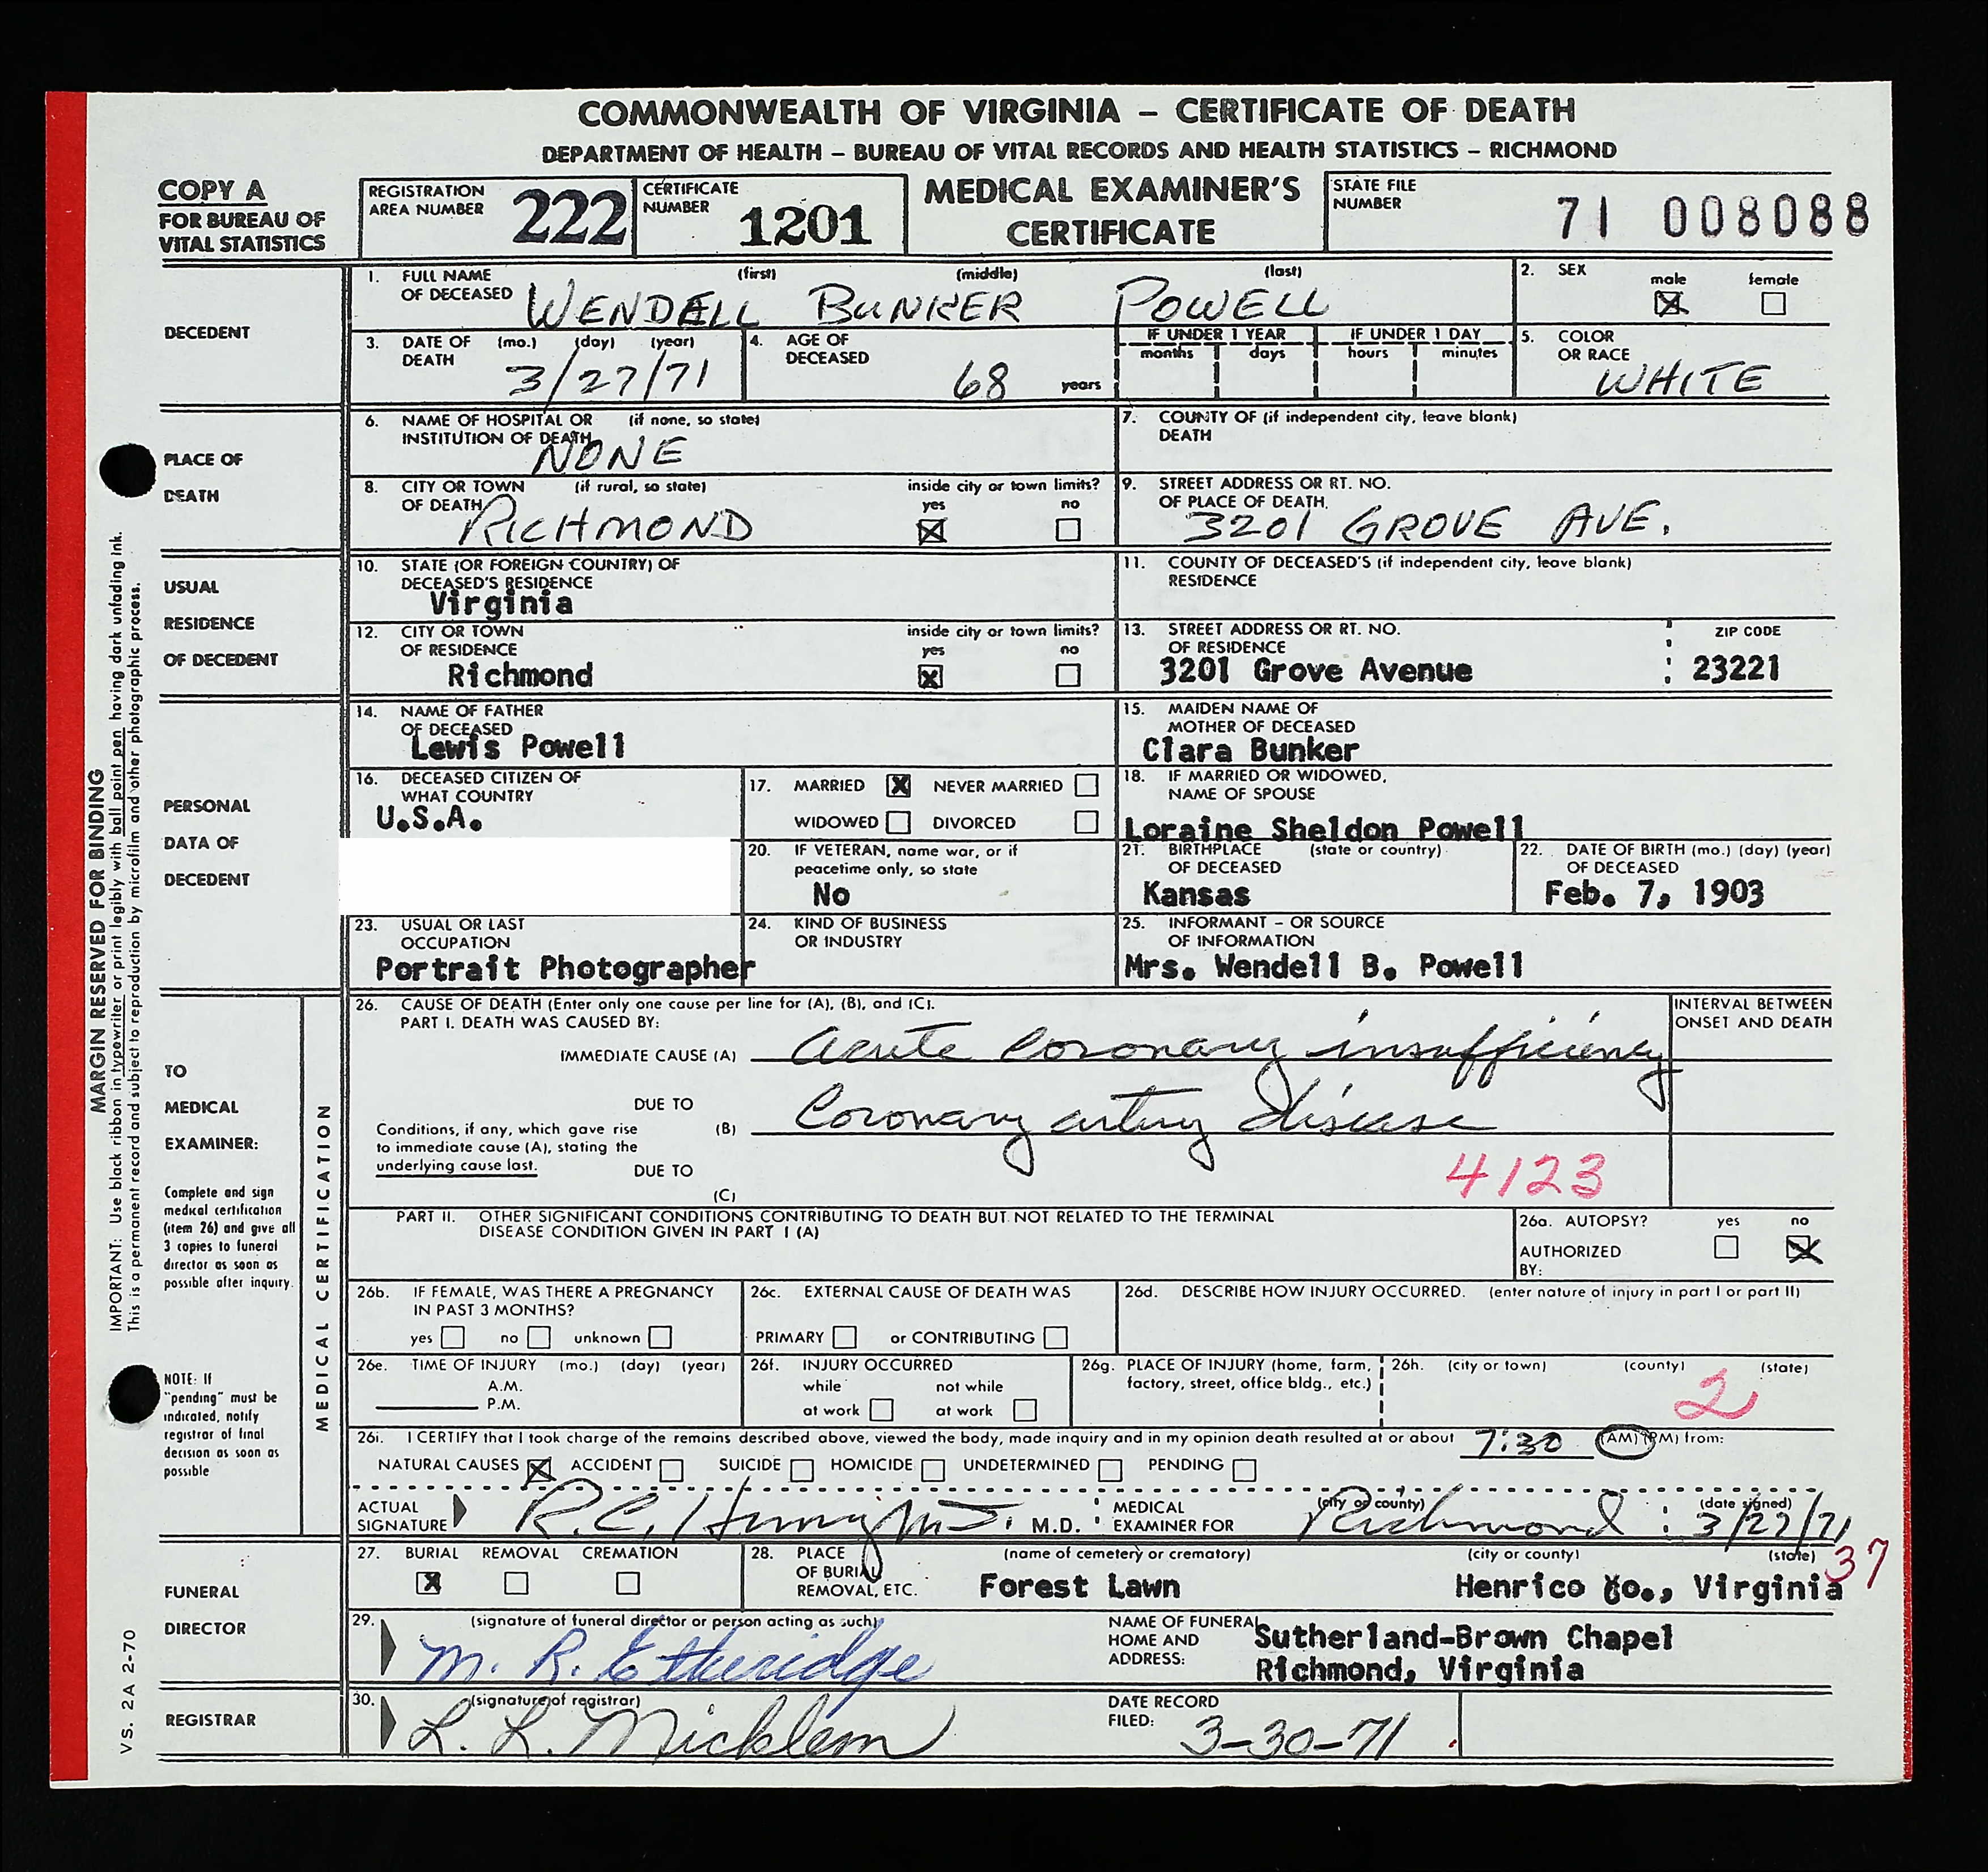 COMMONWEALTH OF VIRGINIA – CERTIFICATE OF DEATH
DEPARTMENT OF HEALTH – BUREAU OF VITAL RECORDS AND HEALTH STATISTICS – RICHMOND
COPY A
FOR BUREAU OF
VITAL STATISTICS
REGISTRATION
AREA NUMBER 222
CERTIFICATE
NUMBER 1201
MEDICAL EXAMINER'S
CERTIFICATE
STATE FILE
NUMBER 71 008088
DECEDENT
1. FULL NAME (first) (middle) (last)
OF DECEASED WENDELL BUNKER POWELL
2. SEX male female
3. DATE OF (mo.) (day) (year)
DEATH 3/27/71
4. AGE OF
DECEASED 68 years
IF UNDER 1 YEAR
months days
IF UNDER 1 DAY
hours minutes
5. COLOR
OR RACE WHITE
PLACE OF
DEATH
6. NAME OF HOSPITAL OR (if none, so state)
INSTITUTION OF DEATH
NONE
7. COUNTY OF (if independent city, leave blank)
DEATH
8. CITY OR TOWN (if rural, so state) inside city or town limits?
OF DEATH yes no
RICHMOND
9. STREET ADDRESS OR RT. NO.
OF PLACE OF DEATH
3201 GROVE AVE.
USUAL
RESIDENCE
OF DECEDENT
10. STATE (OR FOREIGN COUNTRY) OF
DECEASED'S RESIDENCE
Virginia
11. COUNTY OF DECEASED'S (if independent city, leave blank)
RESIDENCE
12. CITY OR TOWN inside city or town limits?
OF RESIDENCE yes no
Richmond
13. STREET ADDRESS OR RT. NO. ZIP CODE
OF RESIDENCE
3201 Grove Avenue 23221
PERSONAL
DATA OF
DECEDENT
14. NAME OF FATHER
OF DECEASED
Lewis Powell
15. MAIDEN NAME OF
MOTHER OF DECEASED
Clara Bunker
16. DECEASED CITIZEN OF
WHAT COUNTRY
U.S.A.
17. MARRIED X NEVER MARRIED
WIDOWED DIVORCED
18. IF MARRIED OR WIDOWED,
NAME OF SPOUSE
Loraine Sheldon Powell
20. IF VETERAN, name war, or if
peacetime only, so state
No
21. BIRTHPLACE (state or country)
OF DECEASED
Kansas
22. DATE OF BIRTH (mo.) (day) (year)
OF DECEASED
Feb. 7, 1903
23. USUAL OR LAST
OCCUPATION
Portrait Photographer
24. KIND OF BUSINESS
OR INDUSTRY
25. INFORMANT – OR SOURCE
OF INFORMATION
Mrs. Wendell B. Powell
MARGIN RESERVED FOR BINDING
IMPORTANT: Use black ribbon in typewriter or print legibly with ball point pen having dark unfading ink.
This is a permanent record and subject to reproduction by microfilm and other photographic process.
TO
MEDICAL
EXAMINER:
Complete and sign
medical certification
(item 26) and give all
3 copies to funeral
director as soon as
possible after inquiry.
NOTE: If
"pending" must be
indicated, notify
registrar of final
decision as soon as
possible
MEDICAL CERTIFICATION
26. CAUSE OF DEATH (Enter only one cause per line for (A), (B), and (C).
PART I. DEATH WAS CAUSED BY:
INTERVAL BETWEEN
ONSET AND DEATH
IMMEDIATE CAUSE (A) acute coronary insufficiency
DUE TO
Conditions, if any, which gave rise (B) Coronary artery disease
to immediate cause (A), stating the
underlying cause last. DUE TO
4123
(C)
PART II. OTHER SIGNIFICANT CONDITIONS CONTRIBUTING TO DEATH BUT NOT RELATED TO THE TERMINAL
DISEASE CONDITION GIVEN IN PART I (A)
26a. AUTOPSY? yes no
AUTHORIZED
BY:
26b. IF FEMALE, WAS THERE A PREGNANCY
IN PAST 3 MONTHS?
yes no unknown
26c. EXTERNAL CAUSE OF DEATH WAS
PRIMARY or CONTRIBUTING
26d. DESCRIBE HOW INJURY OCCURRED. (enter nature of injury in part I or part II)
26e. TIME OF INJURY (mo.) (day) (year)
A.M.
P.M.
26f. INJURY OCCURRED
while not while
at work at work
26g. PLACE OF INJURY (home, farm,
factory, street, office bldg., etc.)
26h. (city or town) (county) (state)
2
26i. I CERTIFY that I took charge of the remains described above, viewed the body, made inquiry and in my opinion death resulted at or about 7:30 (AM) (PM) from:
NATURAL CAUSES ACCIDENT SUICIDE HOMICIDE UNDETERMINED PENDING
ACTUAL
SIGNATURE R.C. M.D.
MEDICAL (city or county) (date signed)
EXAMINER FOR Richmond 3/27/71
37
FUNERAL
DIRECTOR
27. BURIAL REMOVAL CREMATION
X
28. PLACE (name of cemetery or crematory) (city or county) (state)
OF BURIAL
REMOVAL, ETC. Forest Lawn Henrico Co., Virginia
29. (signature of funeral director or person acting as such)
M. R. Etheridge
NAME OF FUNERAL Sutherland-Brown Chapel
HOME AND
ADDRESS: Richmond, Virginia
REGISTRAR
30. (signature of registrar)
L. L. Micklem
DATE RECORD
FILED: 3-30-71
VS. 2A 2-70